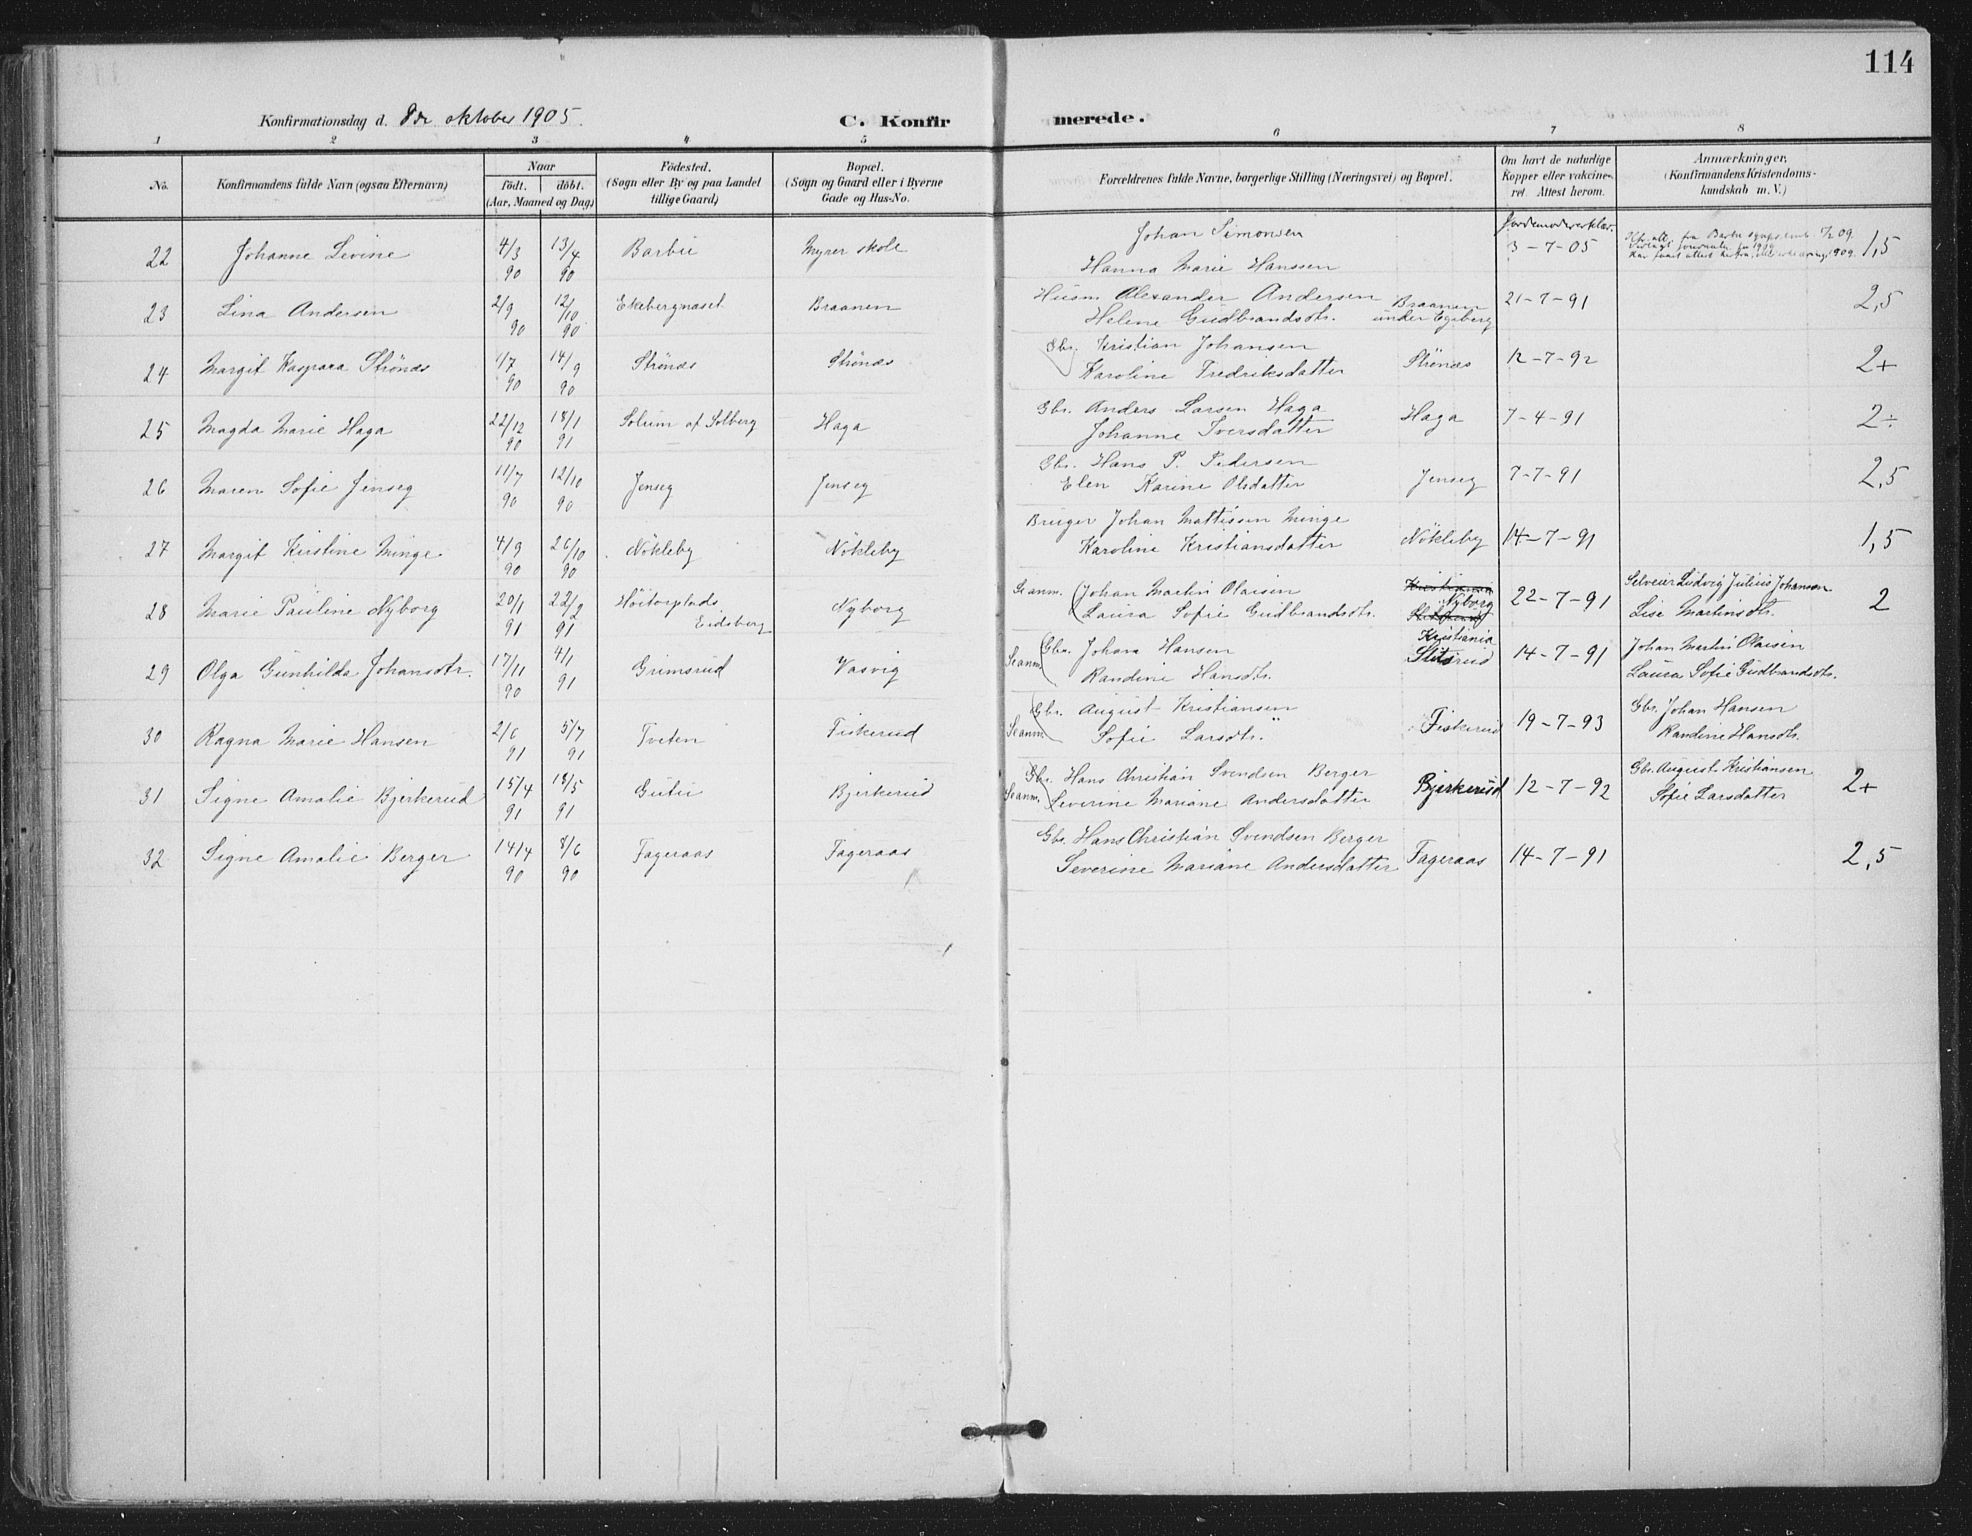 114
Konfirmationsdag d. 8de oktober 1905.
C. Konfirmerede.
1 2 3 4 5 6 7 8
No. Konfirmandens fulde Navn (ogsaa Efternavn) Naar født. døbt. (Aar, Maaned og Dag) Födested. (Sogn eller By og paa Landet tillige Gaard) Bopæl. (Sogn og Gaard eller i Byerne Gade og Hus-No. Forældrenes fulde Navne, borgerlige Stilling (Næringsvei) og Bopæl. Om havt de naturlige Kopper eller vakcineret. Attest herom. Anmærkninger. (Konfirmandens Kristendomskundskab m. V.)
22 Johanne Levine 4/3 90 13/4 90 Barbu Myrer skole Johan Simonsen Hanna Marie Hanssen Jordemodererklær. 3-7-05 1,5
23 Lina Andersen 2/9 90 12/10 90 Ekebergnæset Braanen Husm. Alexander Andersen Helene Gudbrandsdtr. Braanen under Egeberg 21-7-91 2,5
24 Margit Kaspara Strönæs 1/7 90 14/9 90 Strönæs Strönæs Gbr. Kristian Johansen Karoline Fredriksdatter Strönæs 12-7-92 2+
25 Magda Marie Haga 22/12 90 18/1 91 Solum af Solberg Haga Gbr. Anders Larsen Haga Johanne Iversdatter Haga 7-4-91 2÷
26 Maren Sofie Jenseg 11/7 90 12/10 90 Jenseg Jenseg Gbr. Hans P. Pedersen Elen Karine Olsdatter Jenseg 7-7-91 2,5
27 Margit Kirstine Minge 4/9 90 26/10 90 Nökleby Nökleby Bruger Johan Mattisen Minge Karoline Kristiansdatter Nökleby 14-7-91 1,5
28 Marie Pauline Nyborg 20/1 91 22/2 91 Höitorplads Eidsberg Nyborg Se anm. Johan Martin Olaisen Laura Sofie Gudbrandsdtr. Kristiania Nyborg 22-7-91 Selveier Ludvig Julius Johansen Lise Martinsdtr. 2
29 Olga Gunhilda Johansdtr. 17/11 90 4/1 91 Grimsrud Vasvig Se anm. Gbr. Johan Hansen Randine Hansdtr. Kristiania Slitsrud 14-7-91 Johan Martin Olaisen Laura Sofie Gudbrandsdtr.
30 Ragna Marie Hansen 2/6 91 5/7 91 Tveten Fiskerud Se anm. Gbr. August Kristiansen Sofie Larsdtr. Fiskerud 19-7-93 Gbr. Johan Hansen Randine Hansdtr.
31 Signe Amalie Bjerkerud 15/4 91 18/5 91 Gutu Bjerkerud Se anm. Gbr. Hans Christian Svendsen Berger Severine Mariane Andersdatter Bjerkerud 12-7-92 Gbr. August Kristiansen Sofie Larsdatter 2+
32 Signe Amalie Berger 14/4 90 8/6 90 Fageraas Fageraas Gbr. Hans Christian Svendsen Berger Severine Mariane Andersdatter Fageraas 14-7-91 2,5